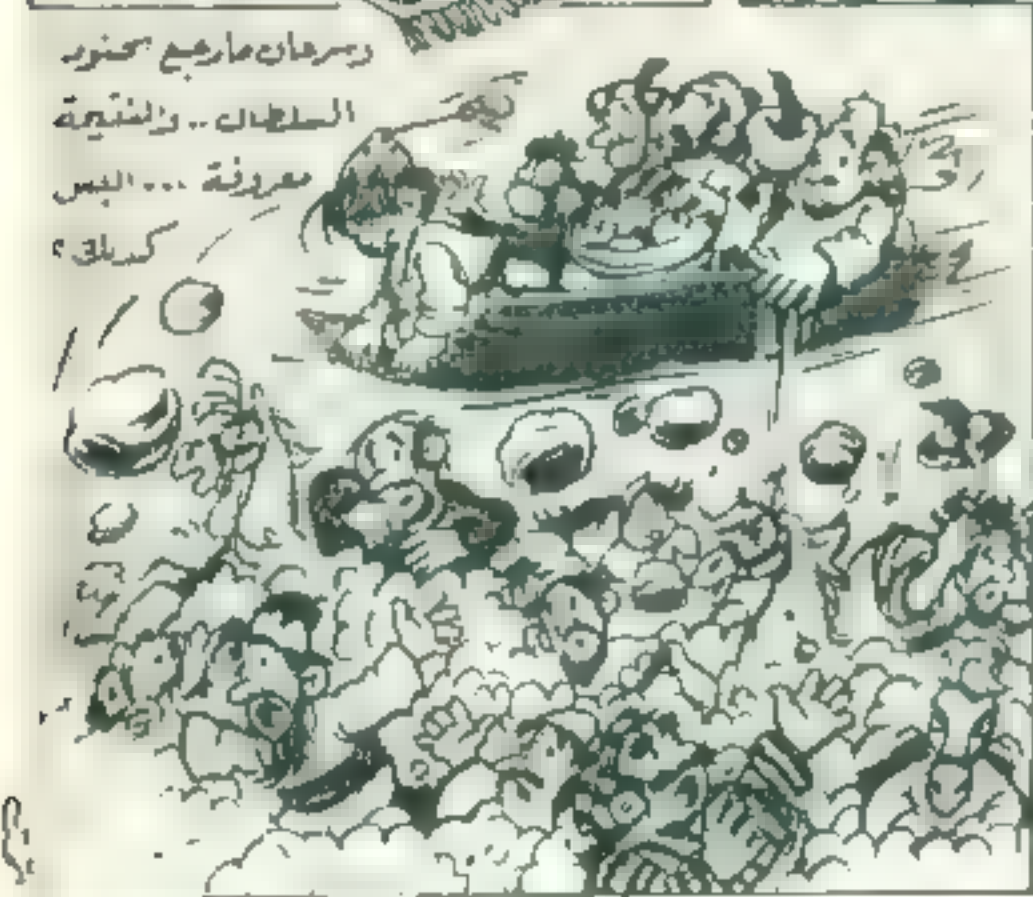 وسرعان مارجع بجنود
السلطان .. والنتيجة
معروفة ... اليس
كذلك ؟